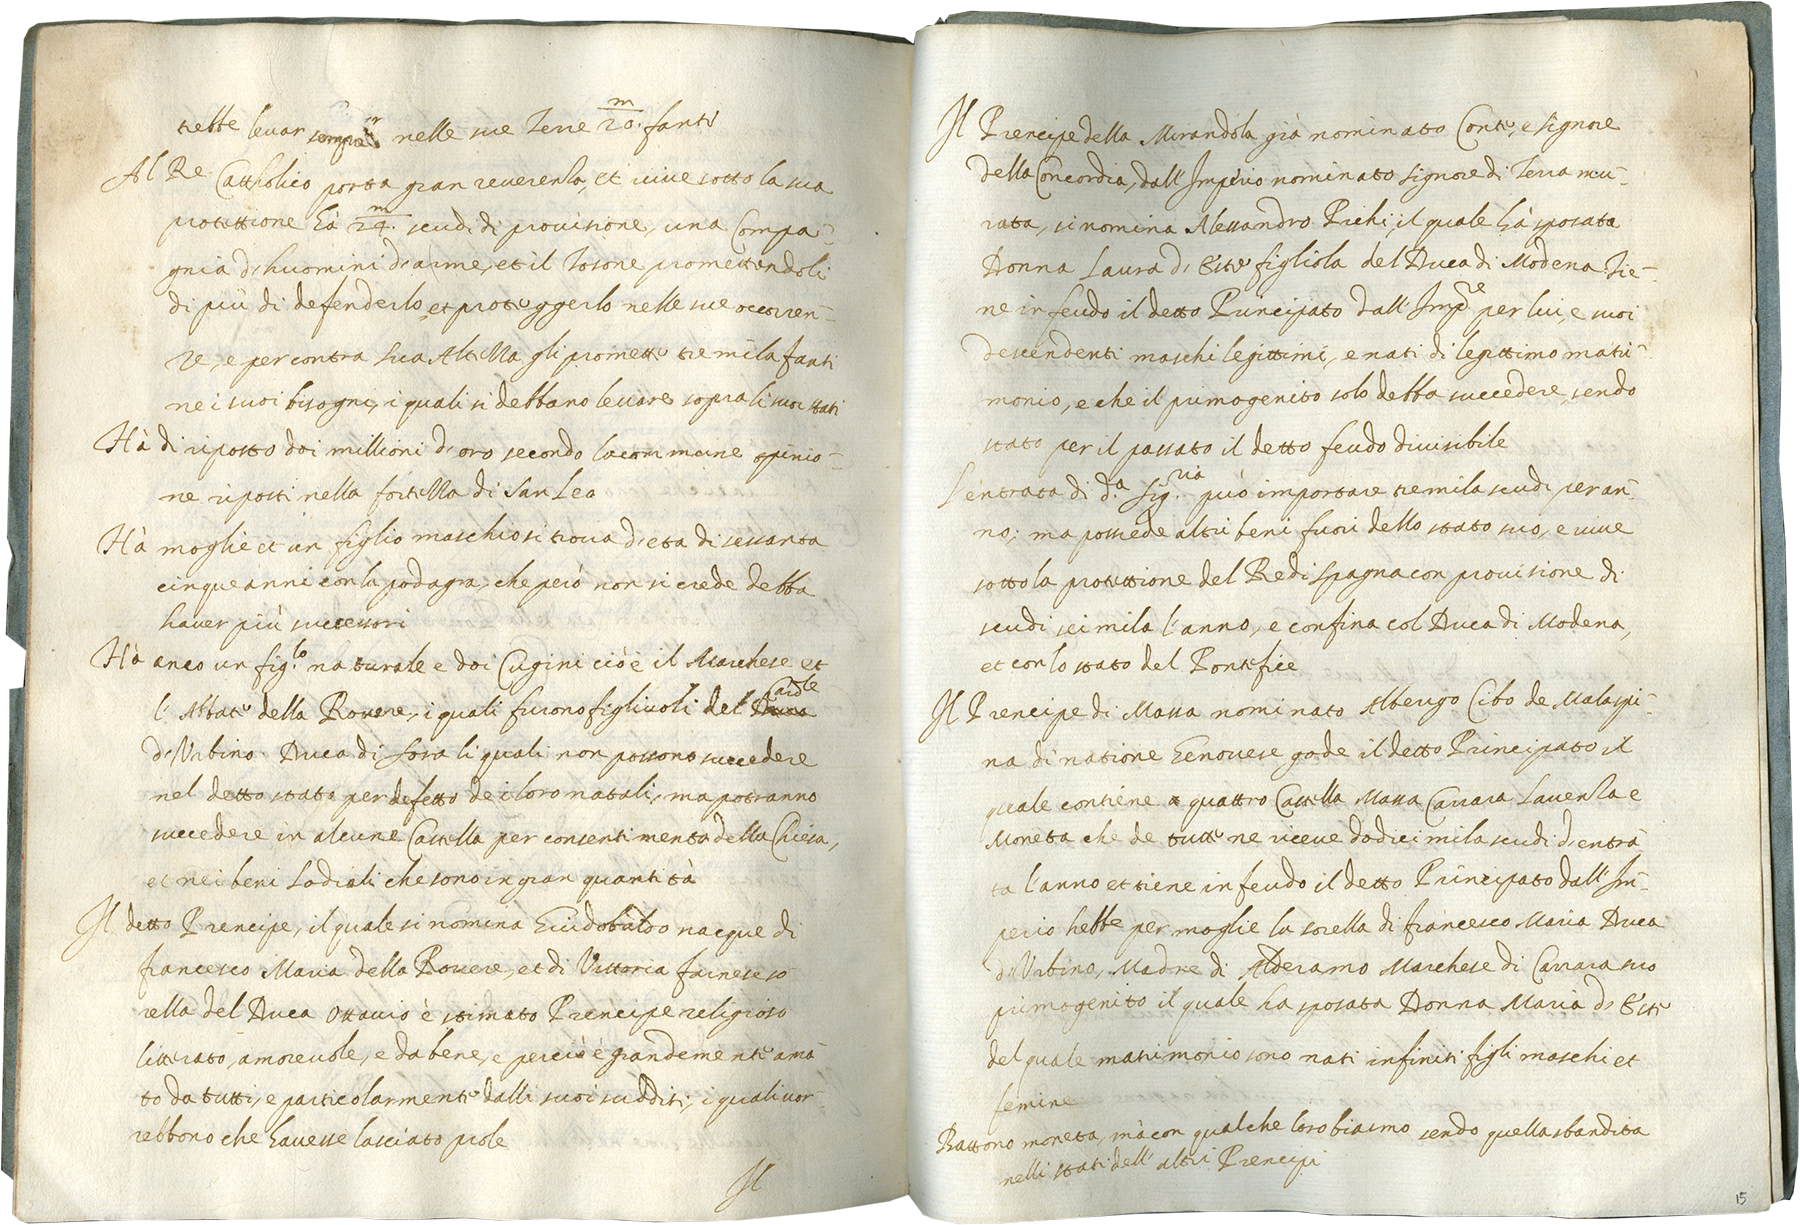 rebbe levar sempre nelle sue Terre 20.m fanti
Al Re Cattholico porta gran reverenza, et vive sotto la sua
protettione hà 24.m scudi di provisione, una Compa-
gnia d'huomini d'arme, et il Tosone promettendoli
di più di defenderlo, et proteggerlo nelle sue occorren-
ze, e per contra sua Altezza gli promette tremila fanti
ne i suoi bisogni, i quali si debbano levare sopra li suoi stati
Hà di riposto doi millioni d'oro secondo la commune opinio-
ne riposti nella fortezza di San Leo
Hà moglie et un figlio maschio si trova d'eta di sessanta
cinque anni con la podagra, che però non si crede debba
haver più successori
Hà anco un fig.lo naturale e doi Cugini cioè il Marchese et
l'Abbate della Rovere, i quali furono figlivoli del Cardle
d'Urbino Duca di Sora li quali non possono succedere
nel detto stato per defetto de i loro natali, ma potranno
succedere in alcune Castella per consentimento della Chiesa,
et nei beni Lodiali che sono in gran quantità
Il detto Prencipe, il quale si nomina Guidobaldo nacque di
francesco Maria della Rovere, et di Vittoria farnese so
rella del Duca Ottavio è stimato Prencipe religioso
litterato, amorevole, e da bene, e perciò è grandemente ama
to da tutti, e particolarmente dalli suoi sudditi, i quali vor
rebbono che havesse lasciato prole
Il
Il Prencipe della Mirandola già nominato Conte, e Signore
della Concordia, dall'Imperio nominato Signore di Terra mu-
rata, si nomina Alessandro Pichi, il quale hà sposata
Donna Laura d'Este figliola del Duca di Modena. Tie-
ne in feudo il detto Principato dall'Imp.re per lui, e suoi
descendenti maschi legittimi, e nati di legittimo matri-
monio, e che il primogenito solo debba succedere, sendo
stato per il passato il detto feudo divisibile
L'entrata di d.a Sig.ria può importare tremila scudi per an-
no; ma possede altri beni fuori dello stato suo, e vive
sotto la protettione del Re di Spagna con provisione di
scudi seimila l'anno, e confina col Duca di Modena,
et con lo stato del Pontefice
Il Prencipe di Massa nominato Alberigo Cibo de Malaspi-
na di natione Genovese gode il detto Principato il
quale contiene quattro Castella Massa Carrara Lavenza e
Moneta che de tutte ne riceve dodici mila scudi d'entra
ta l'anno et tiene in feudo il detto Principato dall'Im-
perio hebbe per moglie la sorella di francesco Maria Duca
d'Urbino, Madre di Alderamo Marchese di Carrara suo
primogenito il quale ha sposata Donna Maria d'Este
del quale matrimonio sono nati infiniti figli maschi et
femine
Battono moneta, mà con qualche loro biasmo sendo quella sbandita
nelli stati dell'altri Prencipi
15